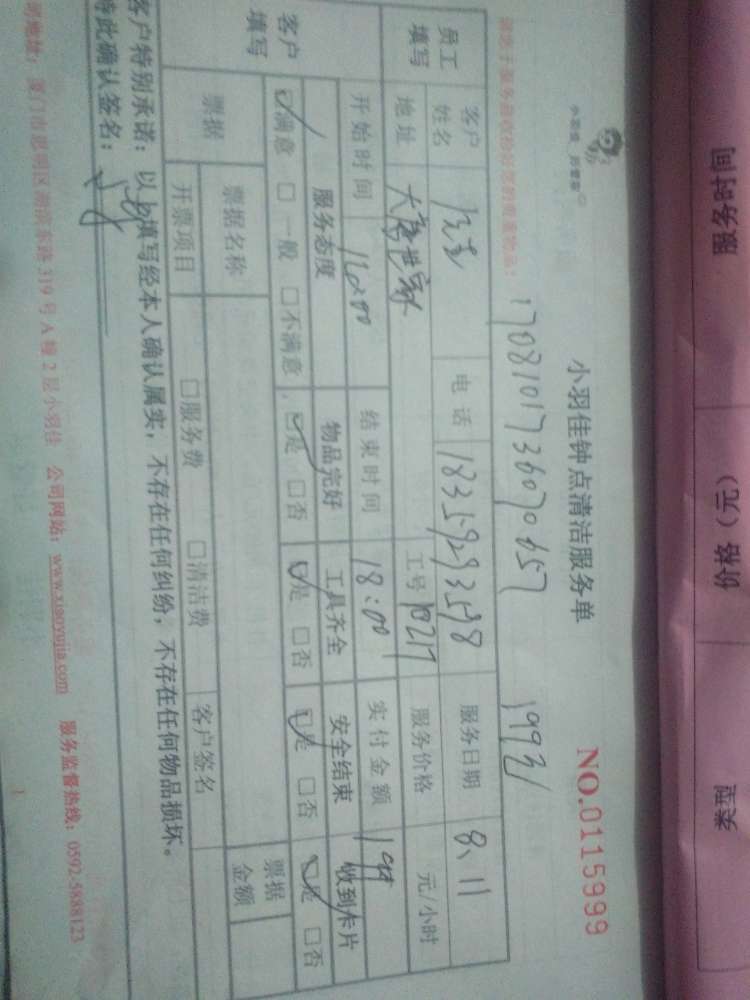 服务时间 价格（元） 类型
小羽佳钟点清洁服务单
NO.0115999
请您于服务前收检好您的贵重物品：
员工填写
客户姓名 电话 18359293598 服务日期 8、11
地址 大唐世家 工号 服务价格 元/小时
客户填写
开始时间 结束时间 18:00 实付金额
服务态度 物品完好 工具齐全 安全结束 收到卡片
☑满意 □一般 □不满意 ☑是 □否 ☑是 □否 ☑是 □否 ☑是 □否
票据 票据名称 票据金额
开票项目 □服务费 □清洁费 客户签名
客户特别承诺：以上填写经本人确认属实，不存在任何纠纷，不存在任何物品损坏。
特此确认签名：
厦门市思明区 319号A幢2层小羽佳 公司网站：www.xiaoyujia.com 服务监督热线：0592-5888123
1